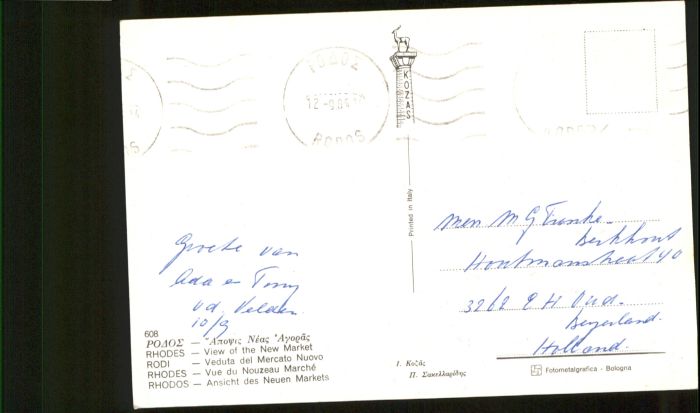 ΡΟΔΟΣ
12-9.84.10
RODOS
KOZAS
Printed in Italy
Groete van
Ada en Tiny
vd. Velden
10/9
men M G Franke-
Berkhout
Houtmanstraat 40
3262 EH Oud-
Beyerland.
Holland.
608
ΡΟΔΟΣ — Ἄποψις Νέας Ἀγορᾶς
RHODES — View of the New Market
RODI — Veduta del Mercato Nuovo
RHODES — Vue du Nouzeau Marché
RHODOS — Ansicht des Neuen Markets
Ι. Κοζᾶς
Π. Σακελλαρίδης
Fotometalgrafica - Bologna